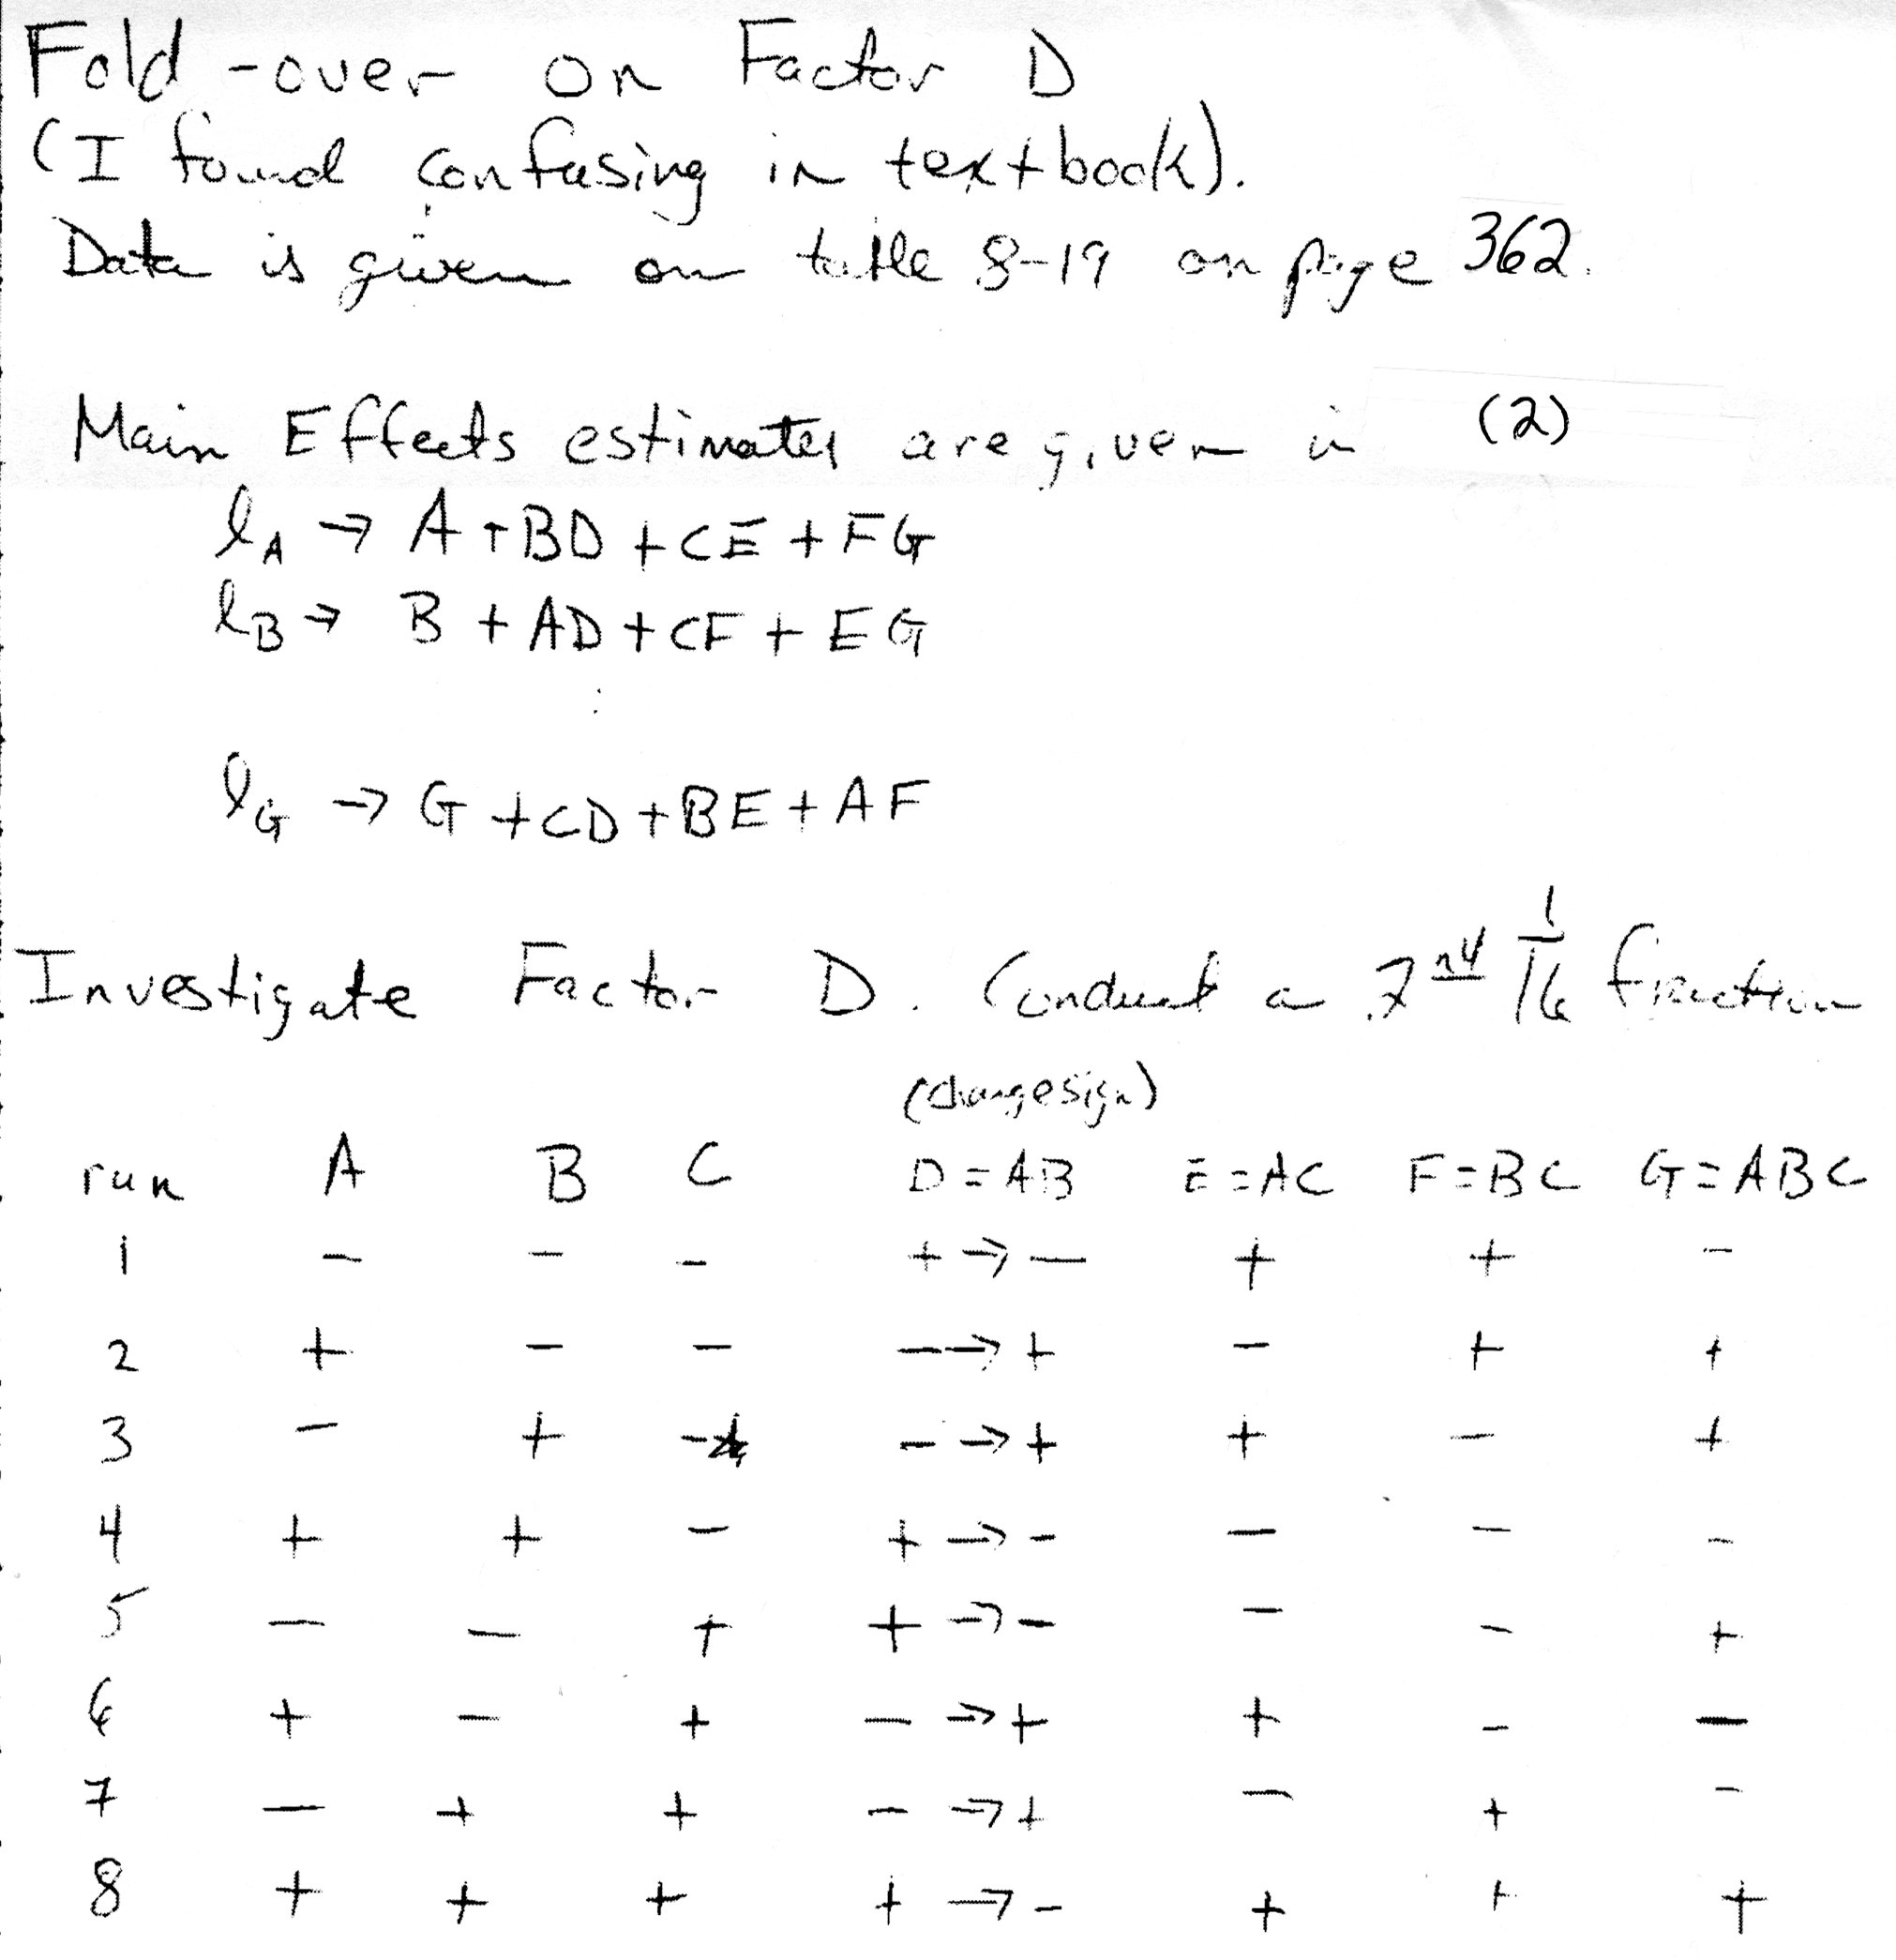 Fold-over on Factor D
(I found confusing in textbook).
Data is given on table 8-19 on page 362.
Main Effects estimates are given in (2)
lA → A + BD + CE + FG
lB → B + AD + CF + EG
:
lG → G + CD + BE + AF
Investigate Factor D. Conduct a 2nd 1/16 fraction
(change sign)
run A B C D = AB E = AC F = BC G = ABC
1 - - - + → - + + -
2 + - - - → + - + +
3 - + - - → + + - +
4 + + - + → - - - -
5 - - + + → - - - +
6 + - + - → + + - -
7 - + + - → + - + -
8 + + + + → - + + +